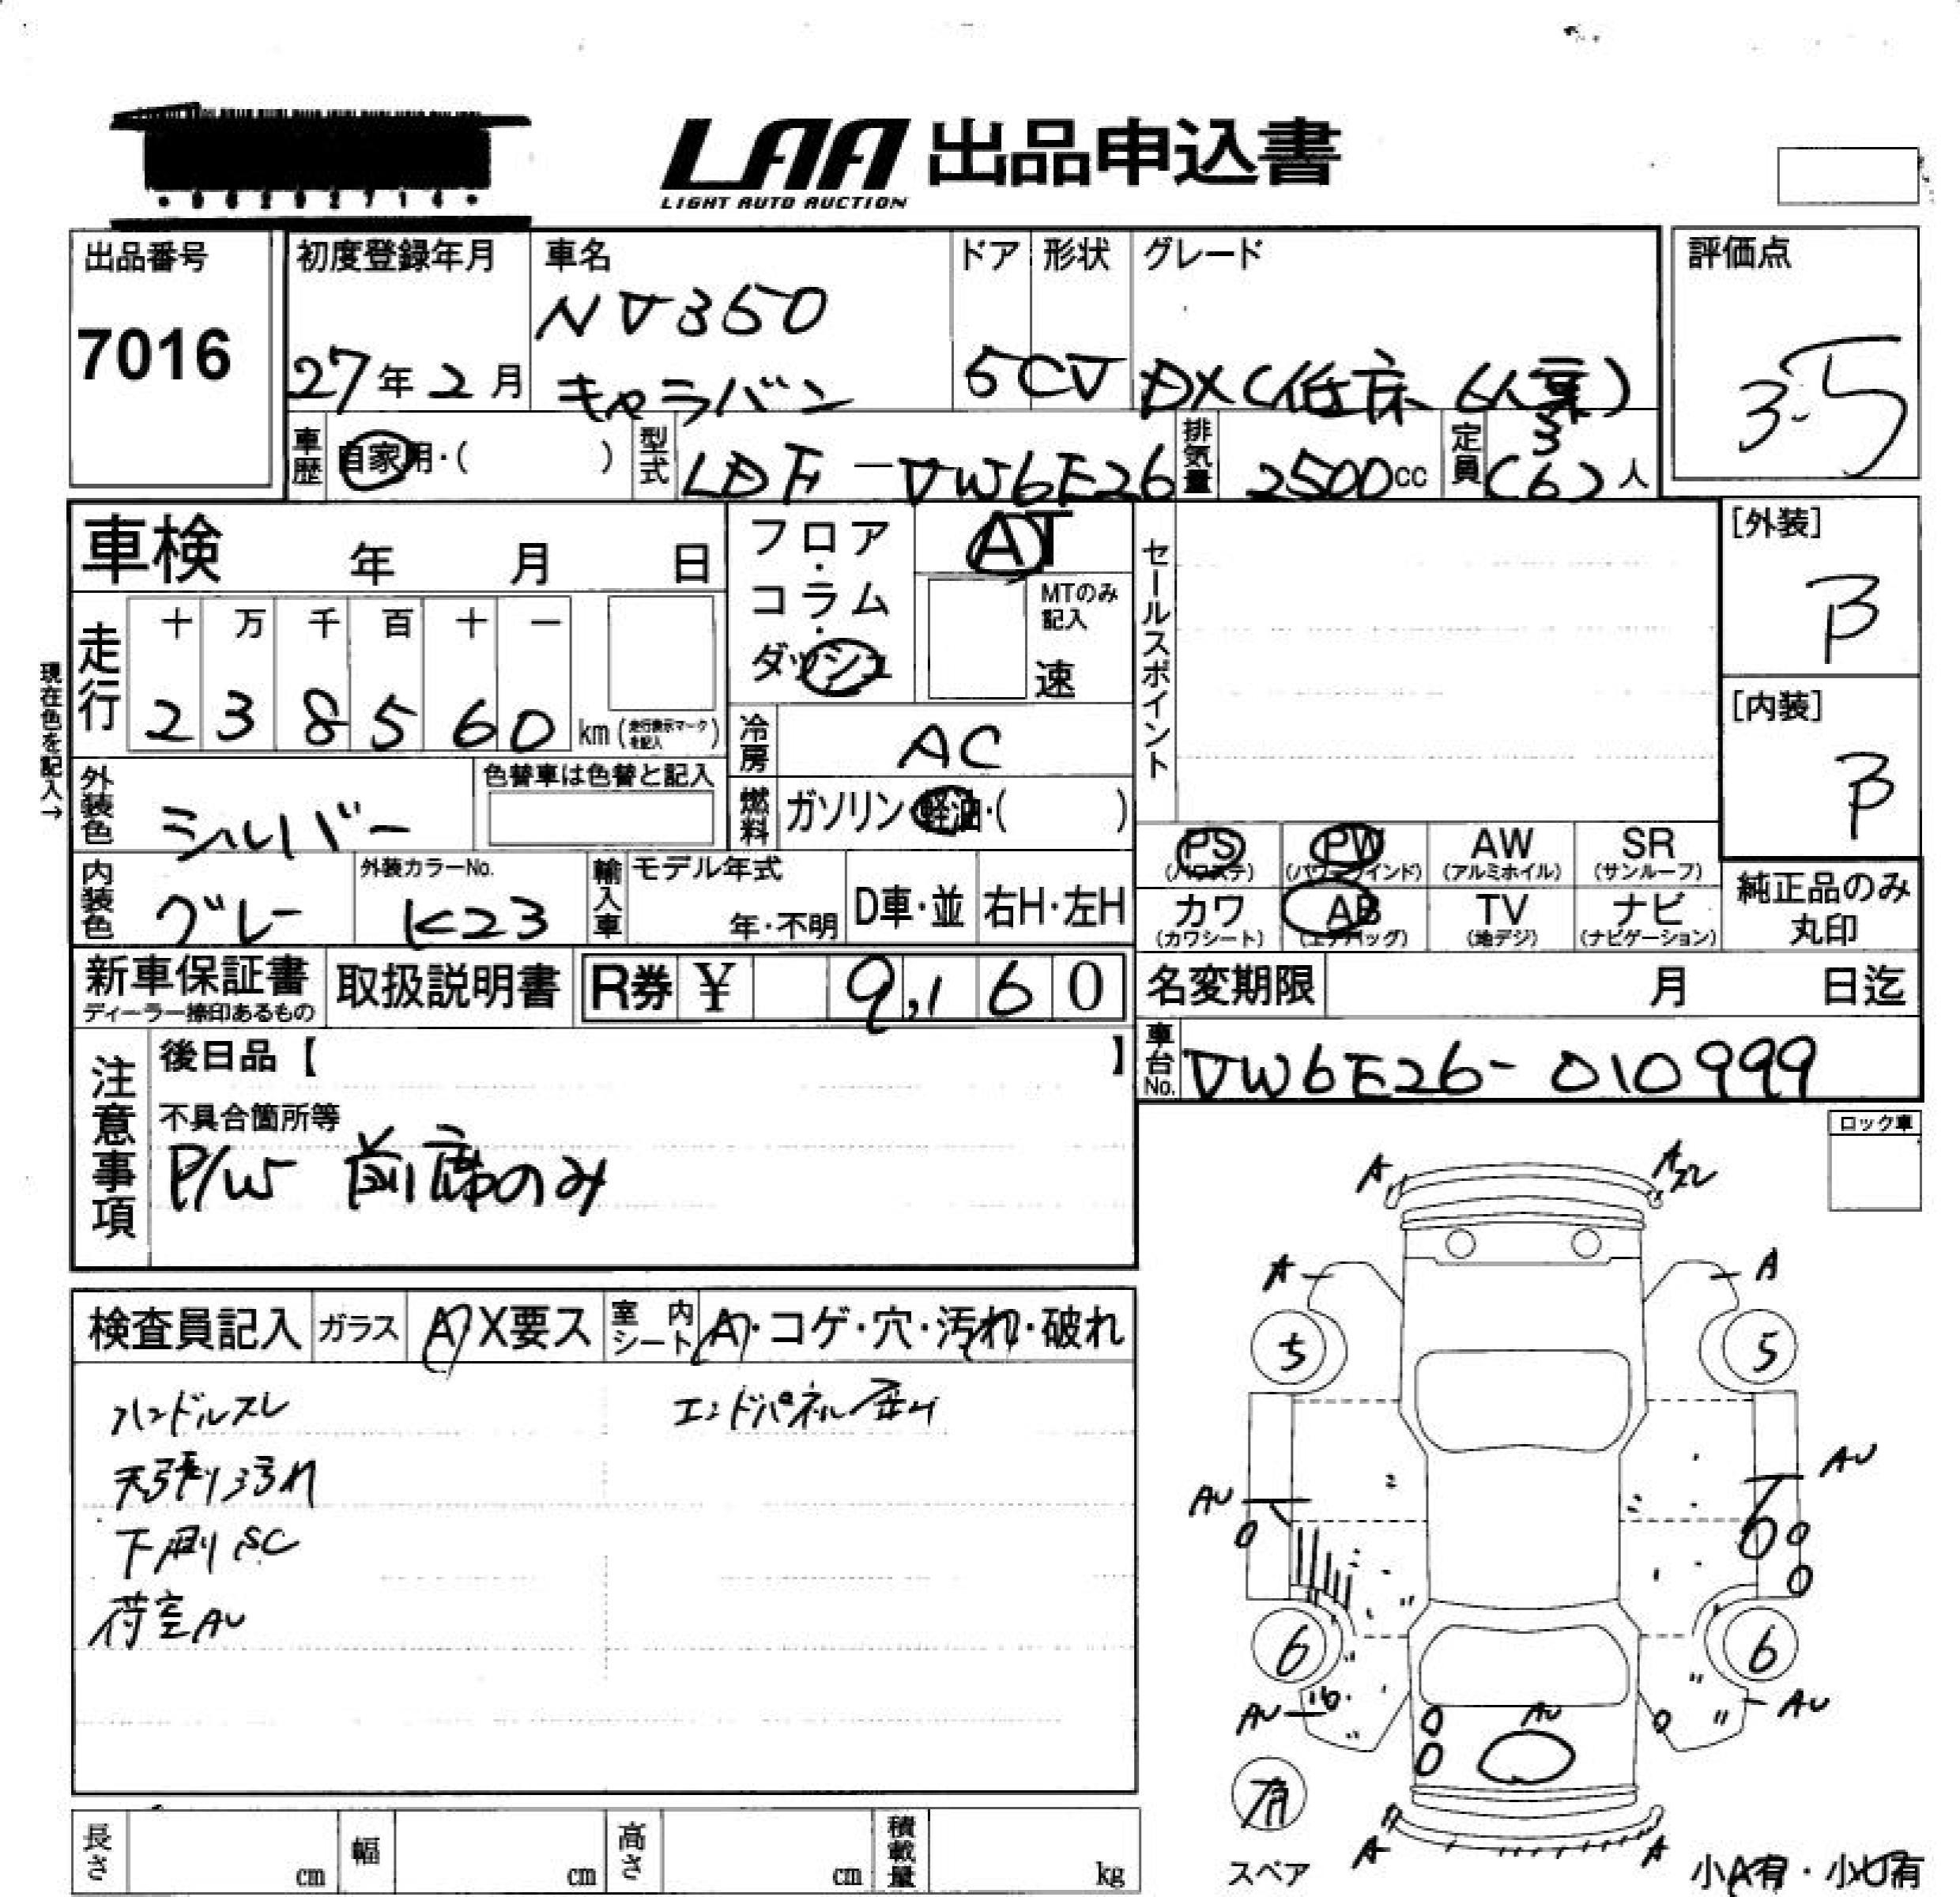 LAA 出品申込書
LIGHT AUTO AUCTION
出品番号
7016
初度登録年月
27年2月
車名
NV350
キャラバン
ドア
5
形状
CV
グレード
DX(低床 6人乗)
評価点
3.5
車歴
自家用・( )
型式
LDF-VW6E26
排気量
2500cc
定員
3
(6)人
車検 年 月 日
フロア・コラム・ダッシュ
AT
MTのみ記入
速
セールスポイント
[外装]
B
[内装]
B
現在色を記入→
走行
十 万 千 百 十 一
2 3 8 5 6 0 km(走行表示マークを記入)
冷房
AC
外装色
シルバー
色替車は色替と記入
燃料
ガソリン・軽油・( )
内装色
グレー
外装カラーNo.
K23
輸入車
モデル年式
年・不明
D車・並
右H・左H
PS
(パワステ)
PW
(パワーウインド)
AW
(アルミホイル)
SR
(サンルーフ)
カワ
(カワシート)
AB
(エアバッグ)
TV
(地デジ)
ナビ
(ナビゲーション)
純正品のみ
丸印
新車保証書
ディーラー捺印あるもの
取扱説明書
R券 ¥ 9,160
名変期限 月 日迄
車台No.
VW6E26-010999
注意事項
後日品【 】
不具合箇所等
P/W 前席のみ
ロック車
検査員記入
ガラス
A X要ス
室内シート
A・コゲ・穴・汚れ・破れ
ハンドルスレ
エンドパネル歪み
天張り汚れ
下廻りSC
荷室AU
A
A
A
A
5
5
AU
AU
6
6
AU
AU
AU
有
スペア
A
A
小A有・小U有
長さ cm
幅 cm
高さ cm
積載量 kg